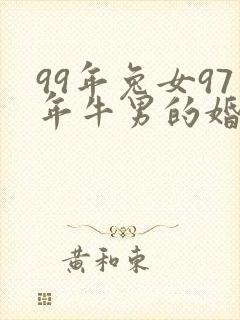 99年兔女97
年牛男的婚
黄和东